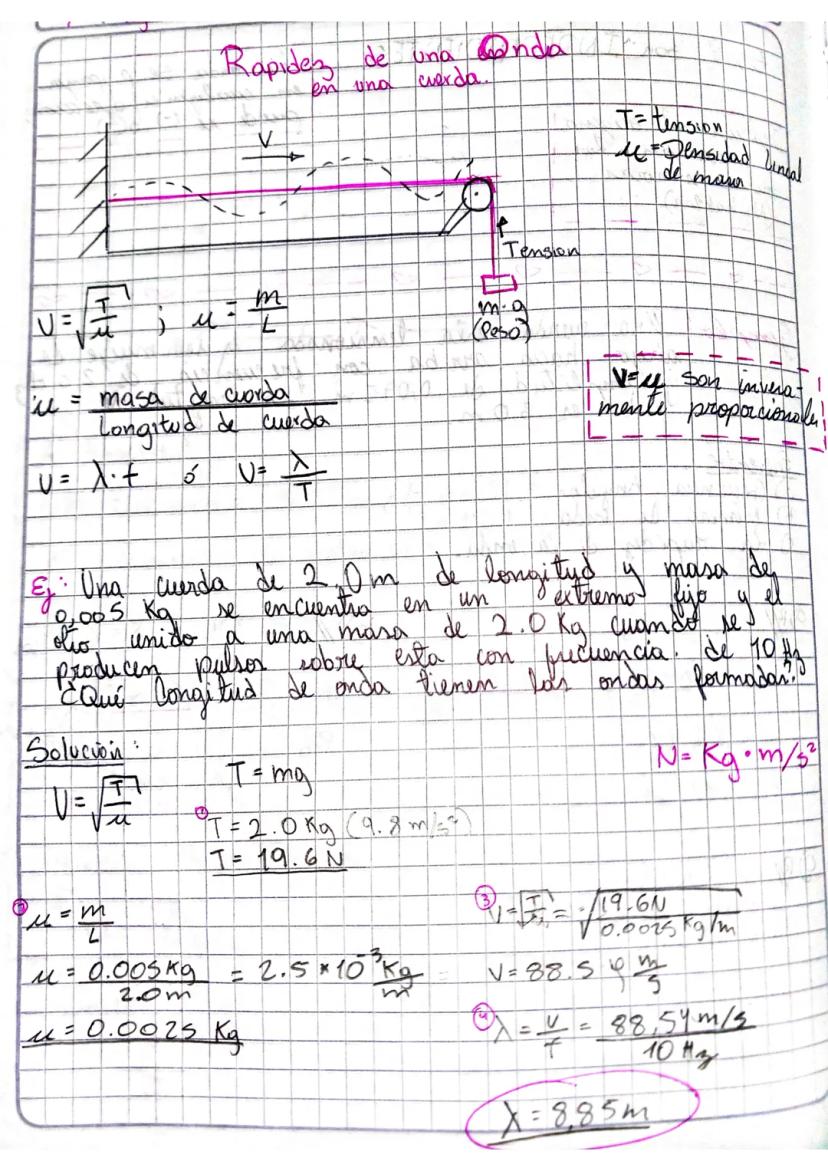 Rapidez de una Onda
en una cuerda.
T = tension
μ = Densidad Lineal
de masa
V
Tension
m·g
(Peso)
V = √(T/μ) ; μ = m/L
V = μ son inversa-
mente proporcionales
μ = masa de cuerda / Longitud de cuerda
V = λ·f ó V = λ/T
Ej: Una cuerda de 2.0m de longitud y masa de
0,005 Kg se encuentra en un extremo fijo y el
otro unido a una masa de 2.0 Kg cuando se
producen pulsos sobre esta con frecuencia. de 10 Hz
¿Qué longitud de onda tienen las ondas formadas?
Solución:
N = Kg·m/s²
V = √(T/μ)
T = mg
① T = 2.0 Kg (9.8 m/s²)
T = 19.6 N
② μ = m/L
μ = 0.005 Kg / 2.0 m = 2.5 × 10⁻³ Kg/m
μ = 0.0025 Kg
③ V = √(T/μ) = √(19.6N / 0.0025 Kg/m)
V = 88.54 m/s
④ λ = v/f = 88,54 m/s / 10 Hz
λ = 8,85m